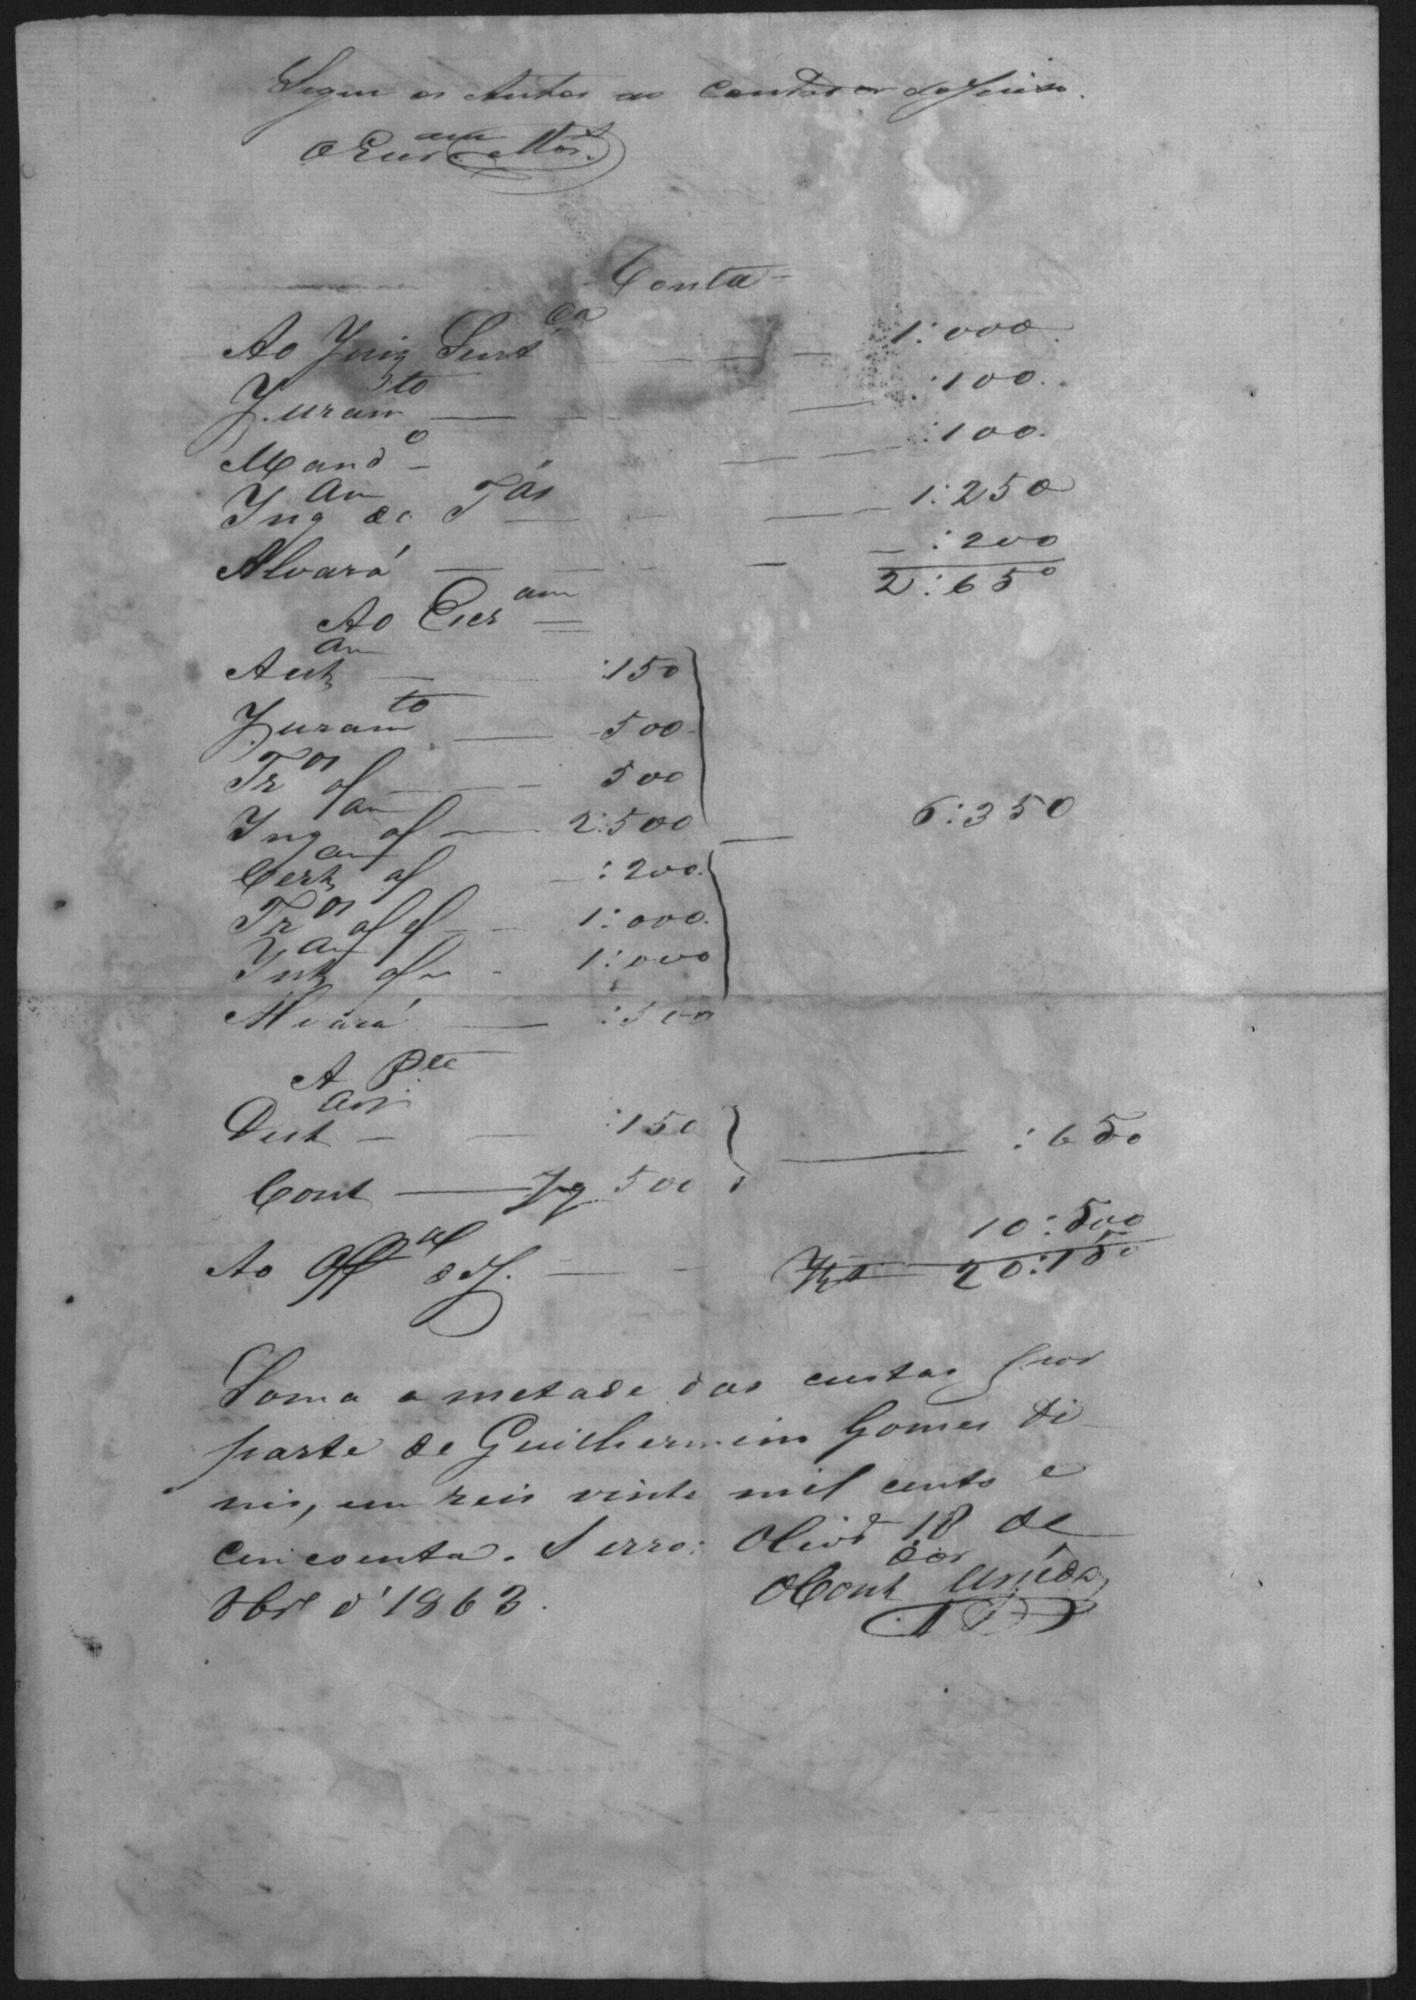 Segue os Autos ao Contador do Juizo.
O Escr.am
Conta =
Ao Juiz Sent.ça 1:000
Juram.to :100
Mand.o :100
Inq.am de T.as 1:250
Alvará :200
2:650
Ao Escr.am
Aut.am :150
Juram.to 500
Tr.os af 500
Inq.am af 2:500
6:350
Cert.am af :200
Tr.os af 1:000
Int.am af 1:000
Alvará :500
A P.te
Dist.am :150
:650
Cont 500
10:500
Ao Off.al de J.
20:150
Soma a metade das custas por
parte de Guilhermino Gomes Di-
nis, em reis vinte mil cento e
cincoenta. Serro: 18 de
8br.o d'1863.
O Cont.dor